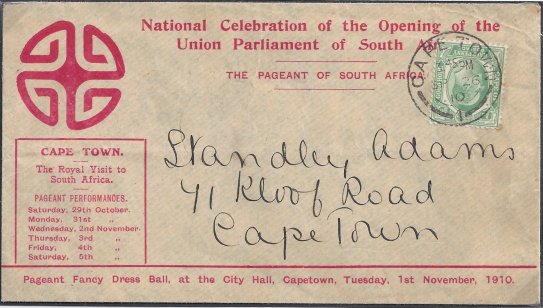 National Celebration of the Opening of the
Union Parliament of South
THE PAGEANT OF SOUTH AFRICA
CAPE TOWN
CAPE TOWN.
The Royal Visit to
South Africa.
PAGEANT PERFORMANCES.
Saturday, 29th October.
Monday, 31st „
Wednesday, 2nd November.
Thursday, 3rd „
Friday, 4th „
Saturday, 5th „
Standley Adams
41 Kloof Road
Cape Town
Pageant Fancy Dress Ball, at the City Hall, Capetown, Tuesday, 1st November, 1910.